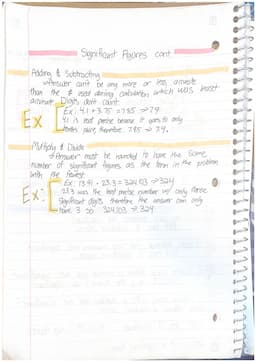 Significant Figures cont.
Adding & Subtracting
Answer can't be any more or less accurate
than the # used during calculation which was least
accurate. Digits don't count.
Ex
Ex: 4.1 + 3.75 = 7.85 → 7.9
4.1 is least precise because it goes to only
tenths place, therefore 7.85 → 7.9.
Multiply & Divide
Answer must be rounded to have the same
number of significant figures as the term in the problem
with the fewest.
Ex:
Ex: 13.91 · 23.3 = 324.103 → 324
23.3 was the least precise number w/ only three
significant digits, therefore the answer can only
have 3 so 324.103 → 324